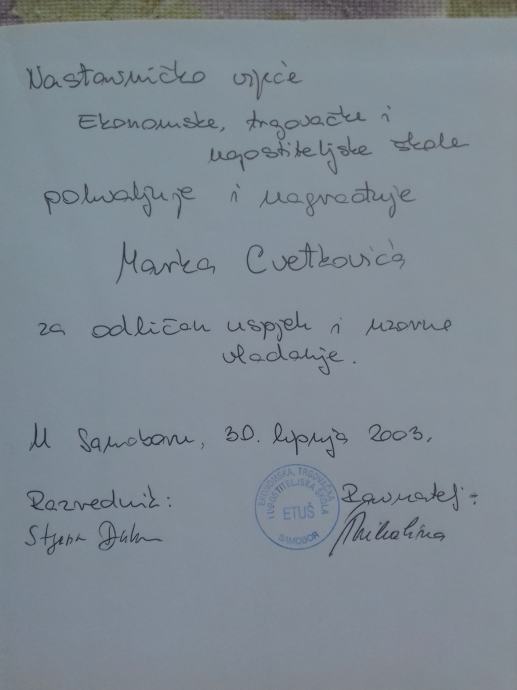 Nastavničko vijeće
Ekonomske, trgovačke i
ugostiteljske škole
pohvaljuje i nagrađuje
Marka Cvetkovića
za odličan uspjeh i uzorno
vladanje.
U Samoboru, 30. lipnja 2003.
Razrednik: Ravnatelj:
EKONOMSKA, TRGOVAČKA
I UGOSTITELJSKA ŠKOLA
ETUŠ
SAMOBOR